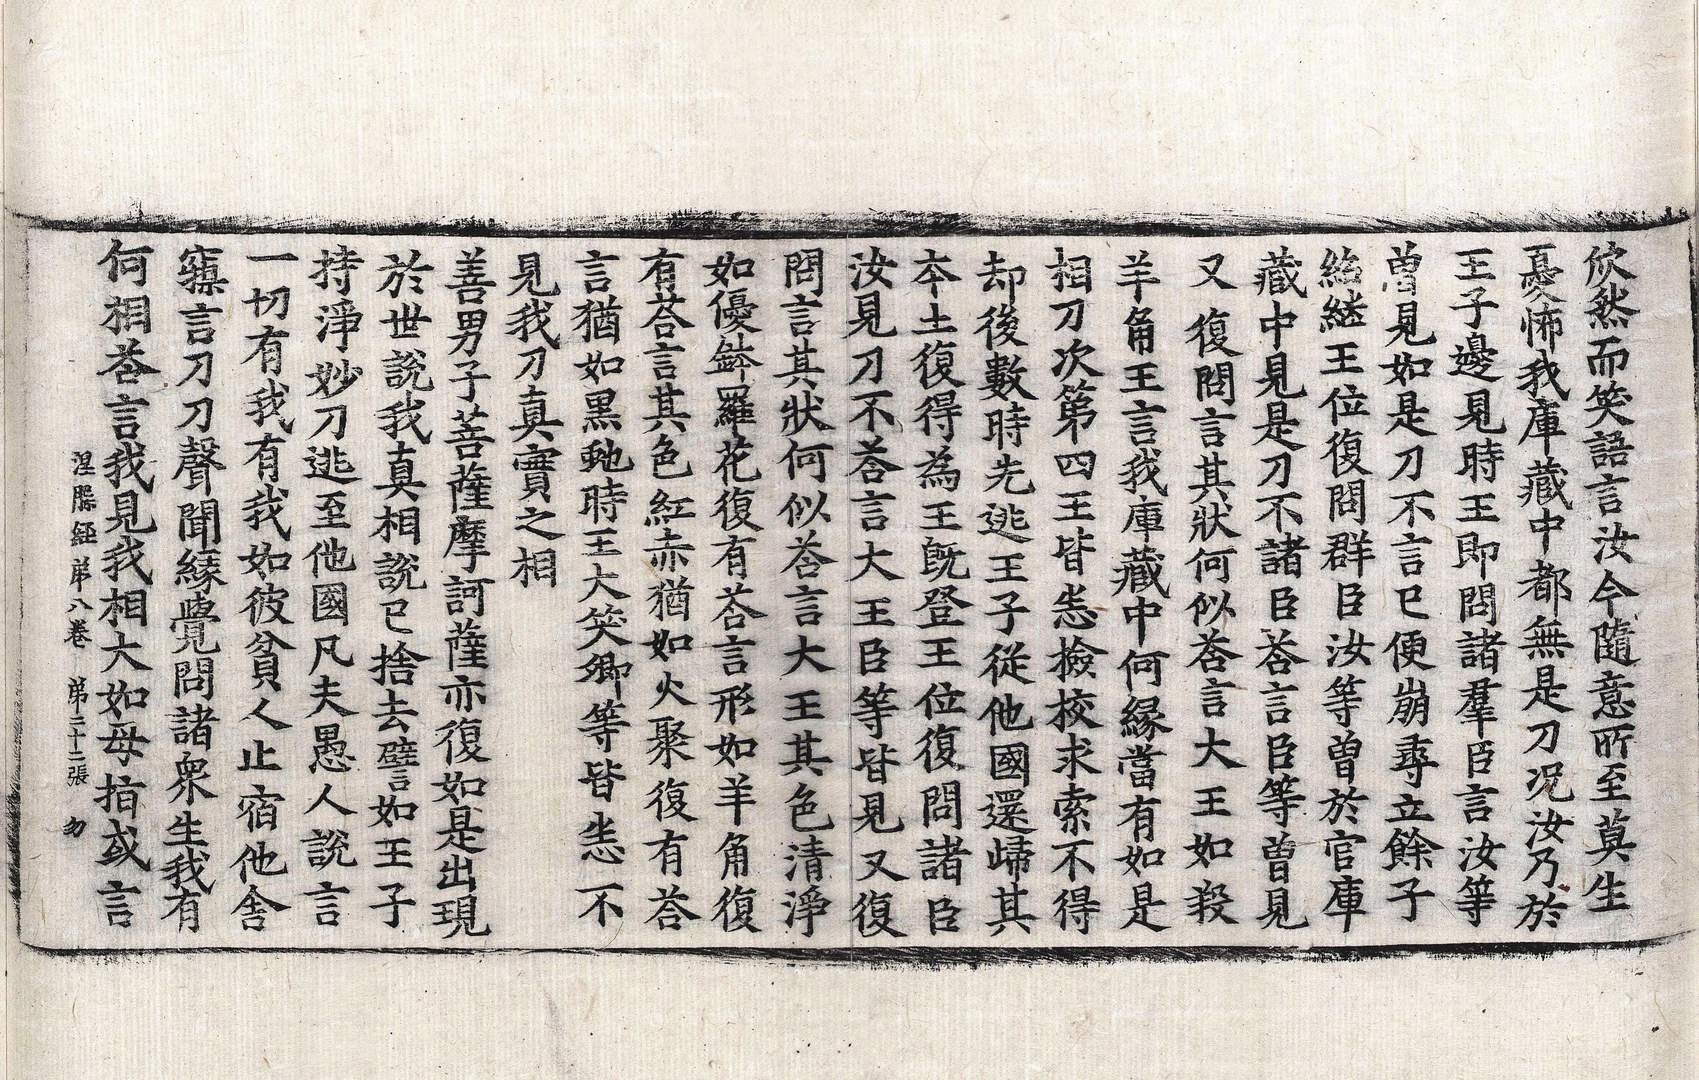 欣然而笑語言汝今隨意所至莫生
憂怖我庫藏中都無是刀况汝乃於
王子邊見時王即問諸羣臣言汝等
曾見如是刀不言已便崩尋立餘子
紹継王位復問群臣汝等曽於官庫
藏中見是刀不諸臣荅言臣等曽見
又復問言其狀何似荅言大王如羖
羊角王言我庫藏中何縁當有如是
相刀次第四王皆悉撿挍求索不得
却後數時先逃王子從他國還歸其
本土復得為王既登王位復問諸臣
汝見刀不荅言大王臣等皆見又復
問言其狀何似荅言大王其色清淨
如優鉢羅花復有荅言形如羊角復
有荅言其色紅赤猶如火聚復有荅
言猶如黒虵時王大笑卿等皆悉不
見我刀真實之相
善男子菩薩摩訶薩亦復如是出現
於世說我真相說已捨去譬如王子
持淨妙刀逃至他國凡夫愚人說言
一切有我有我如彼貧人止宿他舍
寱言刀刀聲聞緣覺問諸衆生我有
何相荅言我見我相大如母指或言
涅槃經 苐八卷 苐二十二張 勿